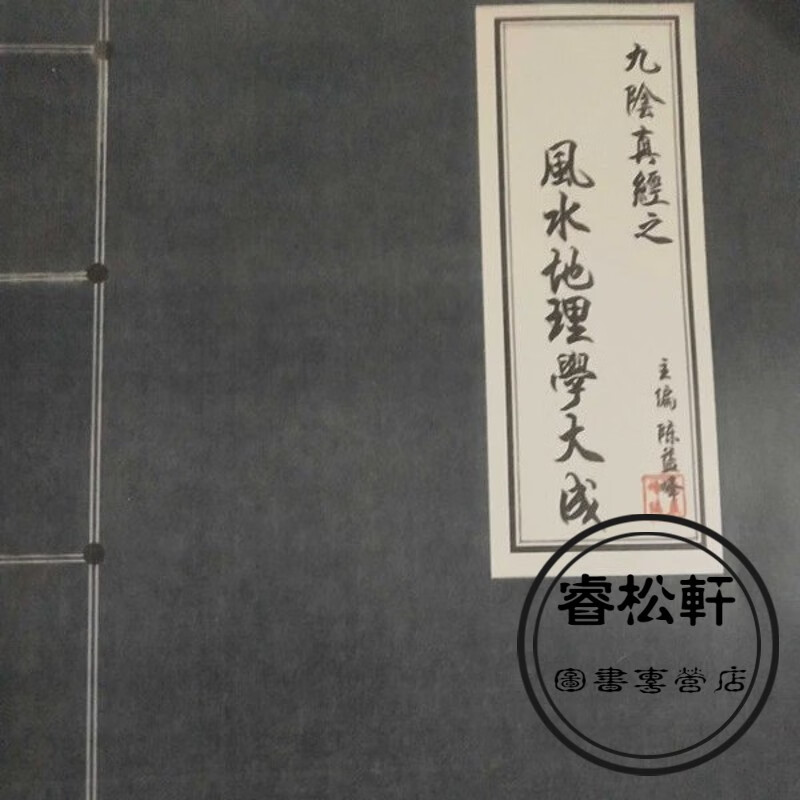 九陰真經之
風水地理學大成
主編 陈益峰
睿松軒
圖書專營店